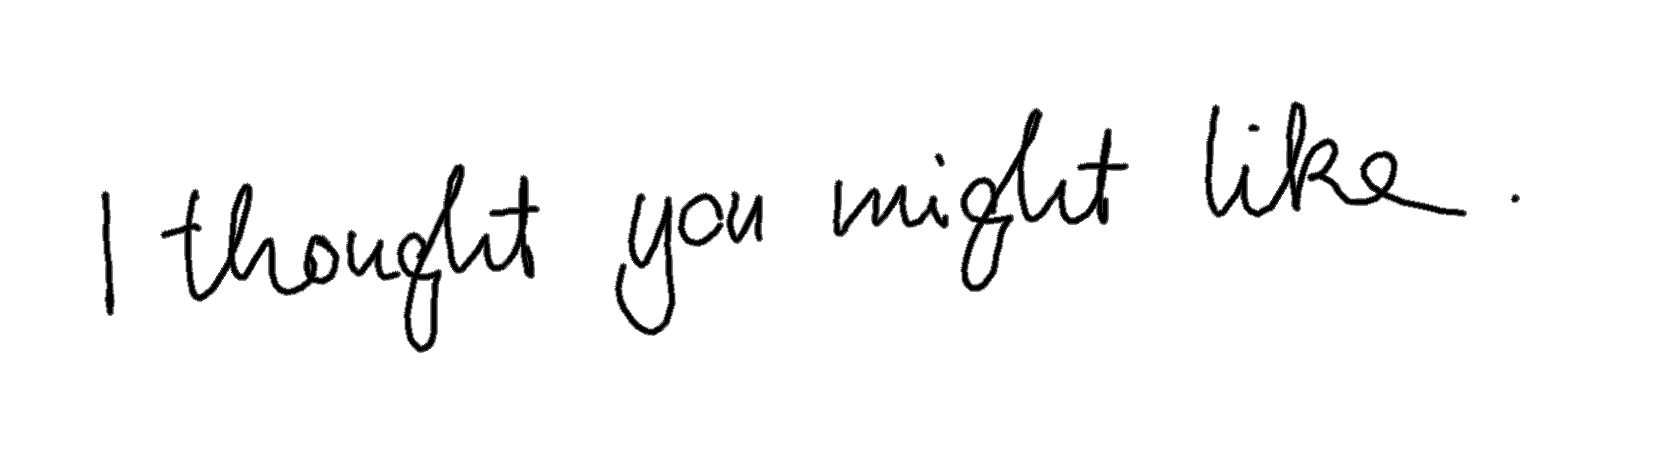 I thought you might like.